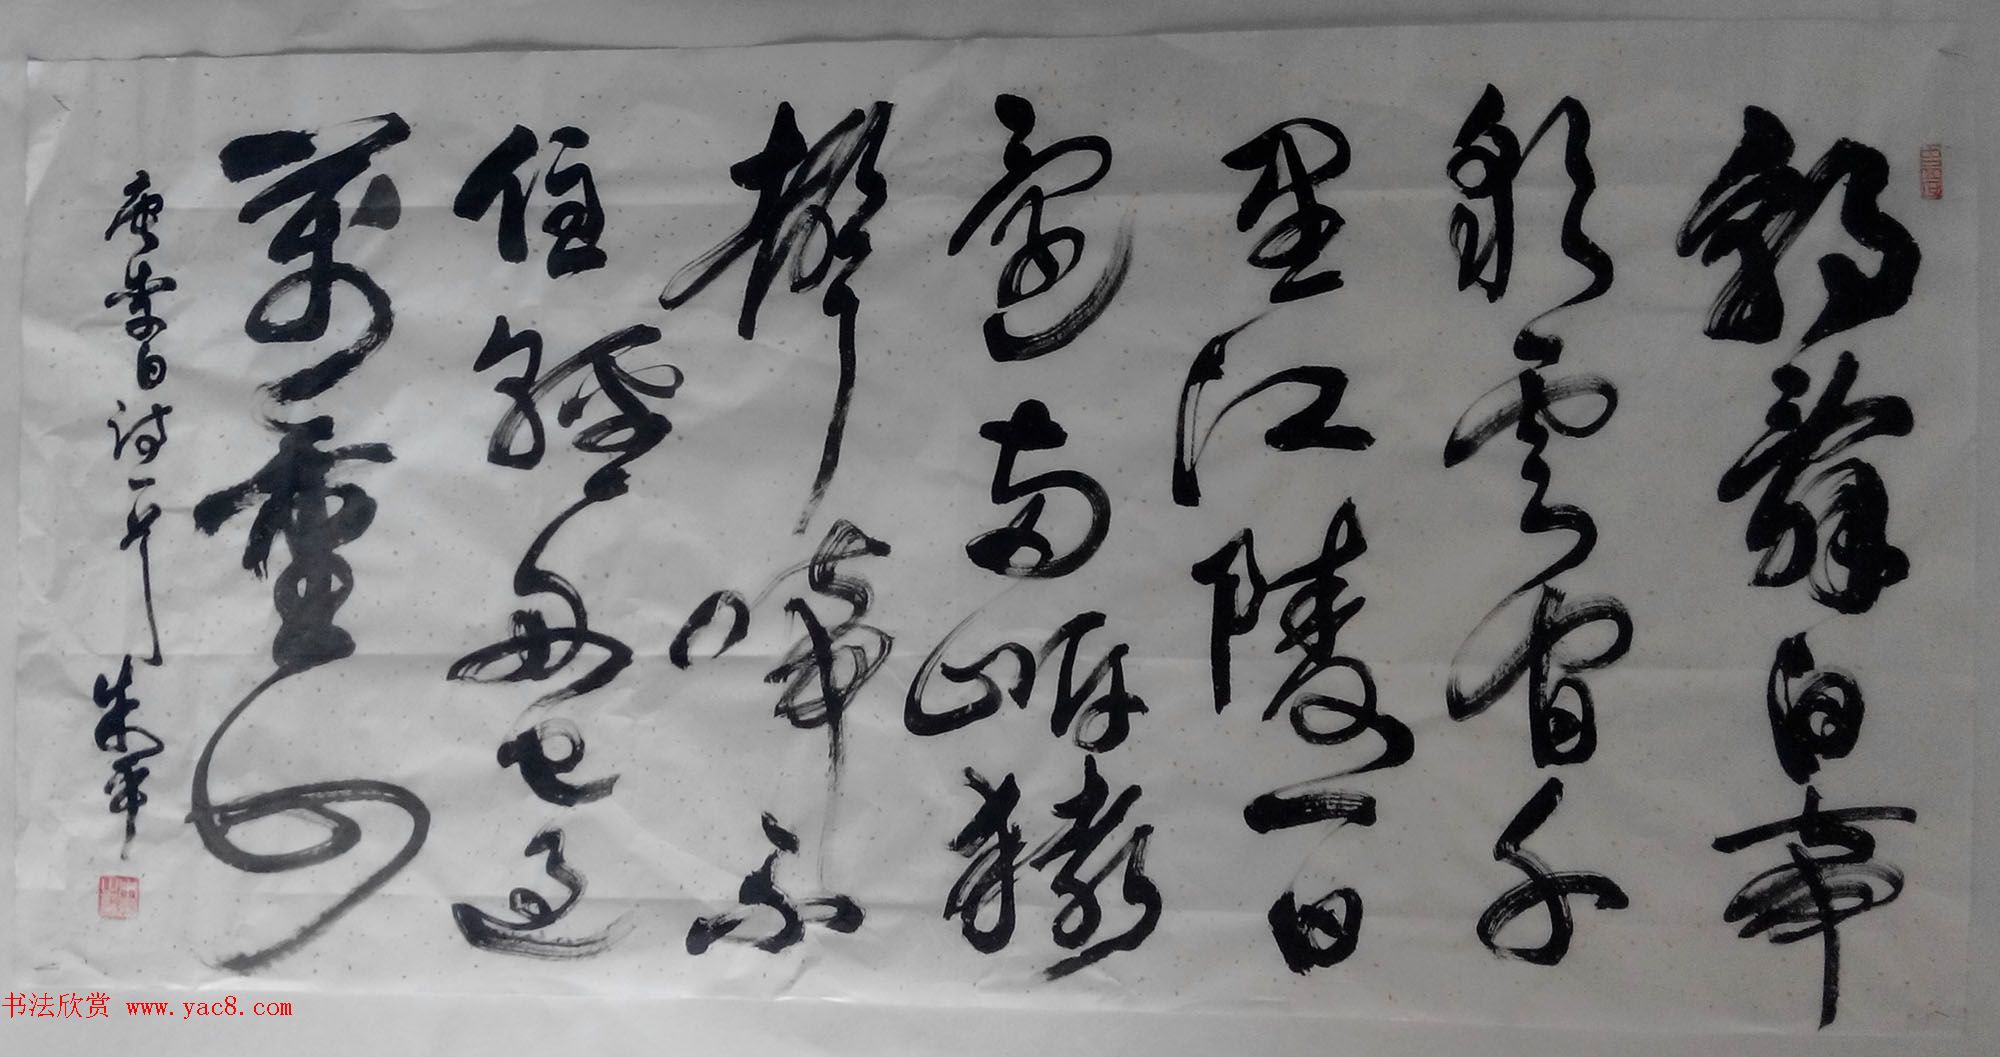 朝辭白帝
彩雲間千
里江陵一日
還兩岸猿
聲啼不
住輕舟已過
萬重山
唐李白詩一首 朱平
书法欣赏 www.yac8.com